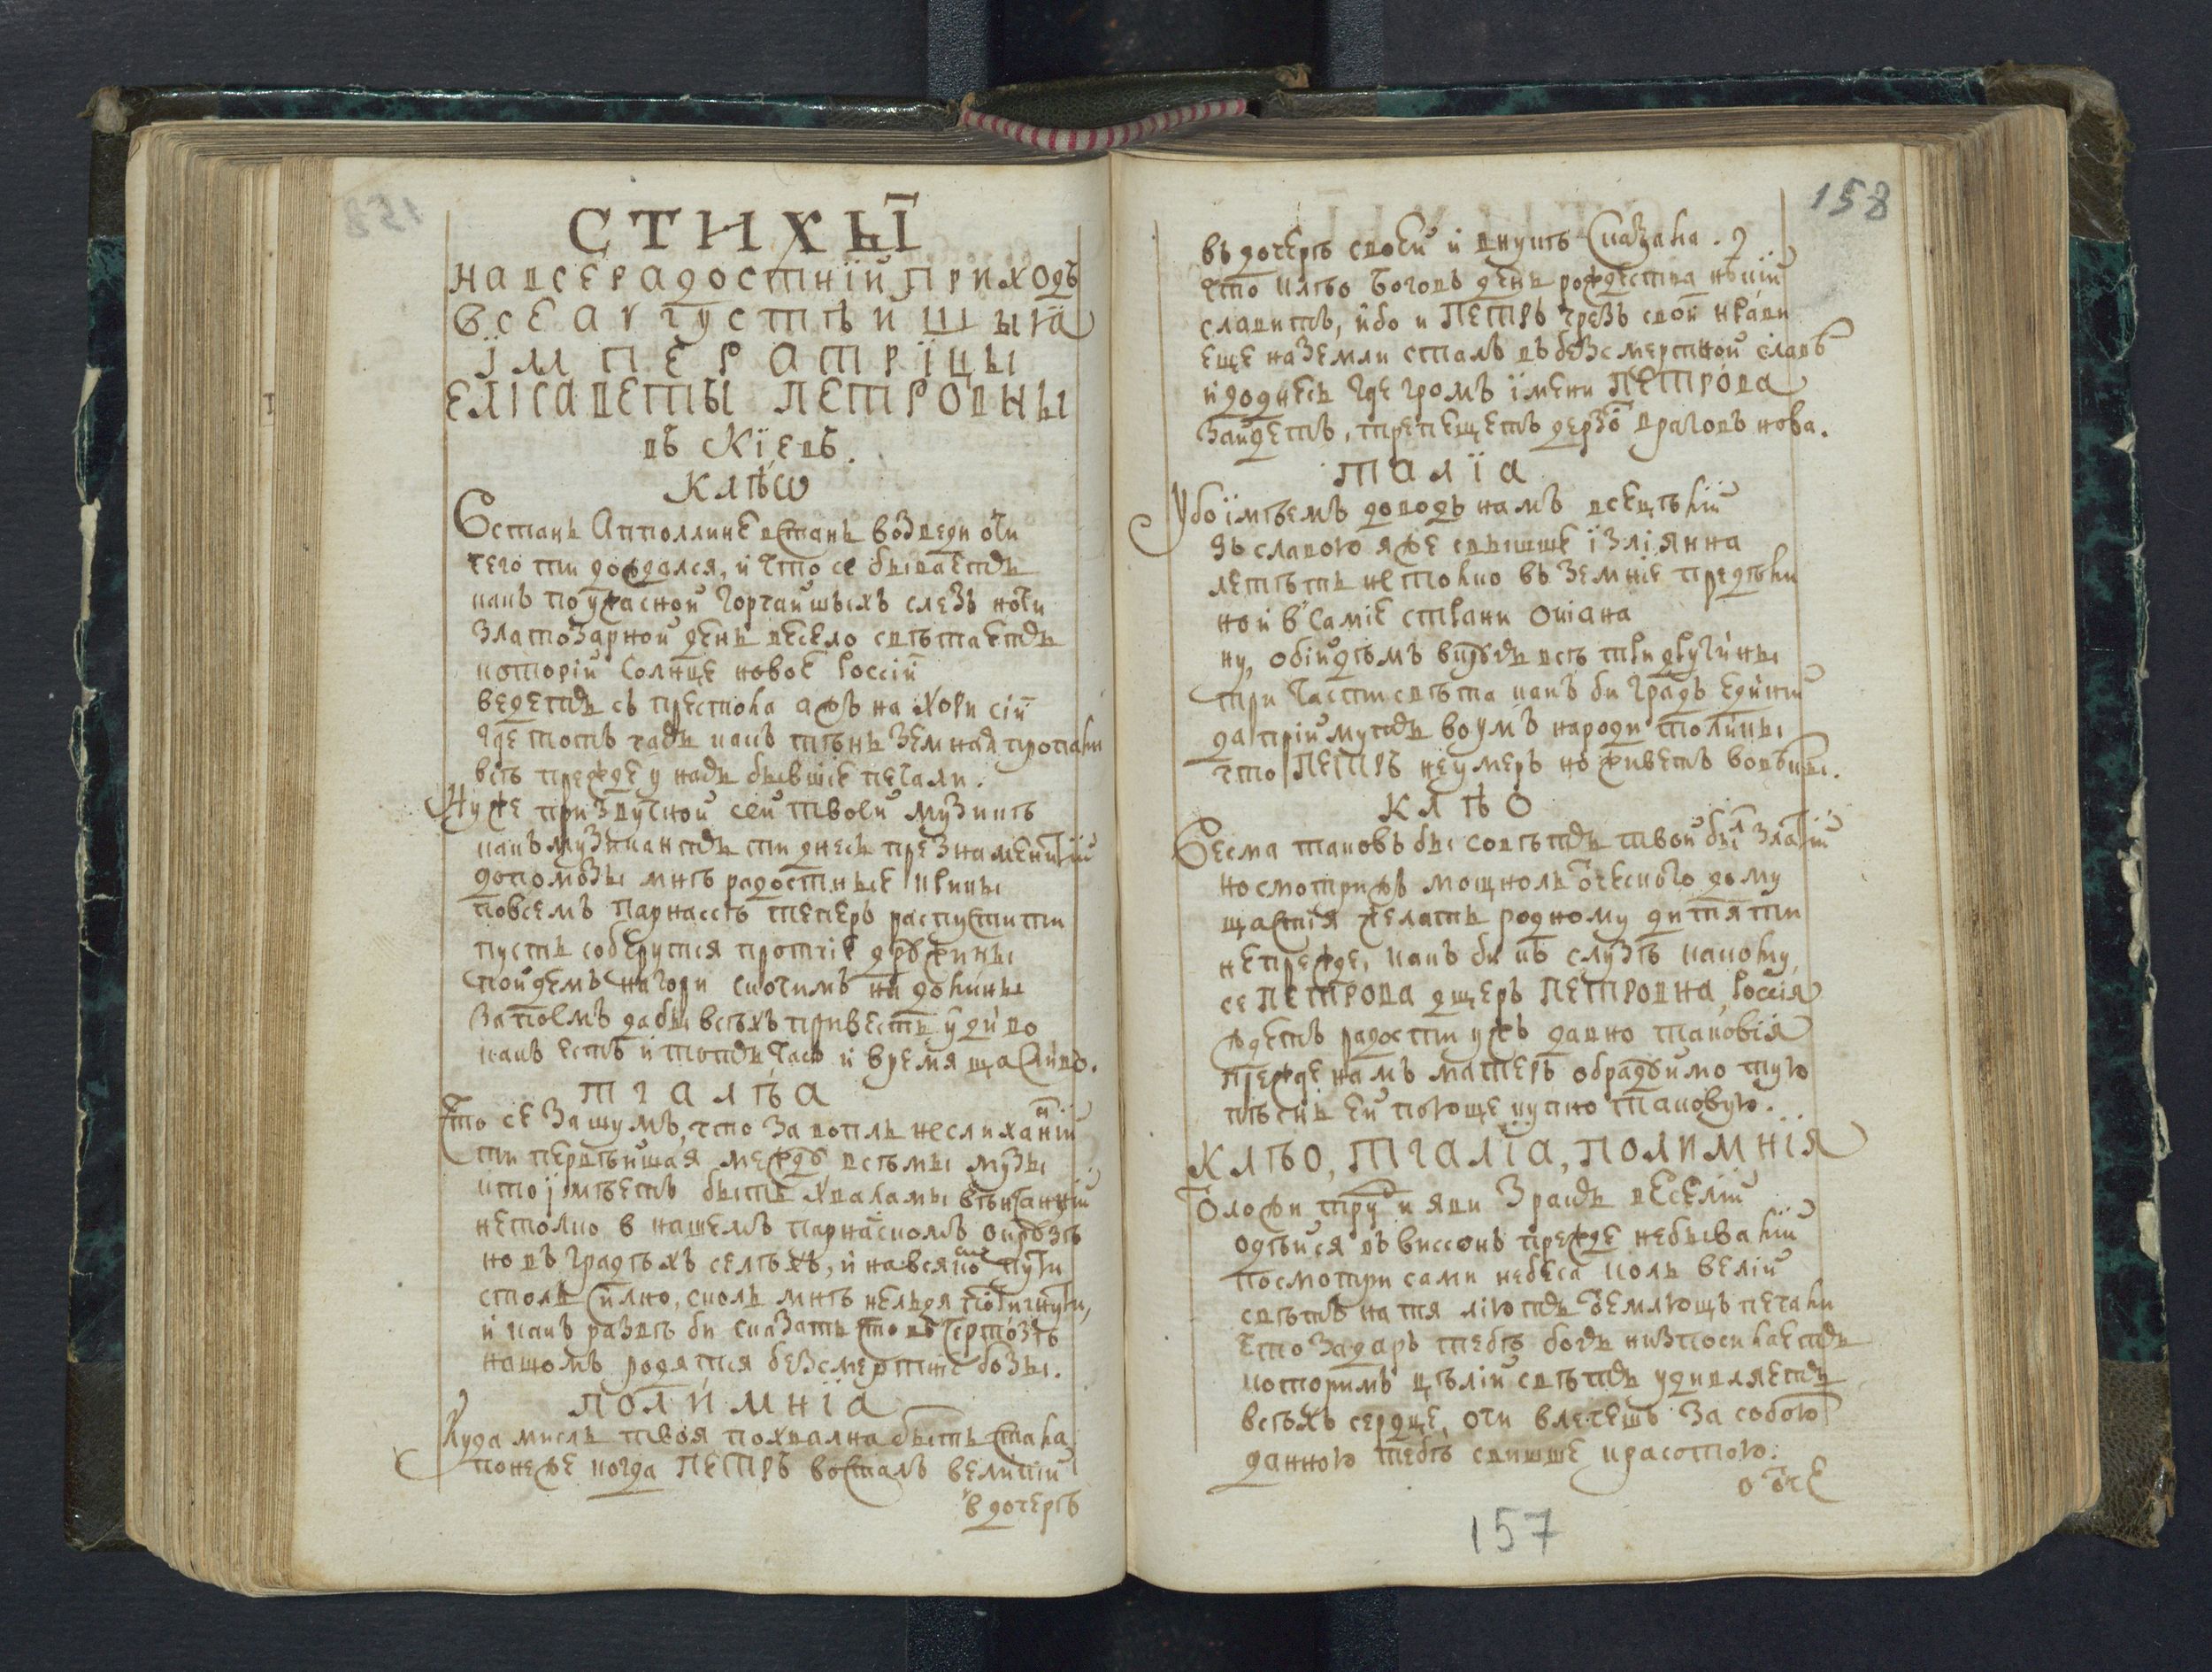 СТИХЫ
на всерадостнїй приходъ
всеаѵгустѣйшыя
їмператрїцы
Елісаветы Петровны
въ Кїевъ.
Клѣѡ
Встань Апполлине встань возведи очи
чего ти дождался, и что се бываетъ
какъ по ужасной горчайшыхъ слезъ ночи
златозарной день весело свѣтаетъ
которій солнце новое Россіи
ведетъ съ престола ажъ на хори сіи
где тотъ часъ какъ тѣнь земная пропали
всѣ прежде у насъ бывшіе печали.
Нуже при звучной сей твоей музикѣ
какъ музикантъ ти днесь презнаменитій
допоможы мнѣ радостные клики
по всемъ Парнассѣ теперъ распустити
пусть соберутся протчіе дружины
пойдемъ на гори скочимъ на долины
запоемъ дабы всѣхъ привесть у диво
какъ естъ и тотъ часъ и время щасливо.
Тгалѣа
Что се за шумъ, что за вопль неслиханній
ти первѣйшая между всѣмы музы
кто імѣетъ быть хваламы вѣнчанній
не толко в нашемъ парнасскомъ окрузѣ
но въ градѣхъ селѣхъ, и на всякомъ пути
столь силно, сколь мнѣ нельзя постигнути,
и какъ развѣ би сказать што въ чертозѣ
нашомъ родятся безсмертніе бозы.
Полимнїа
Куда мисль твоя похвална быть стала
понеже когда ПЕТРЪ восталъ великій
в дочерѣ
158
въ дочерѣ своей и внукѣ сказала.
что Клѣо боговъ день рождества нѣкій
славитъ, ибо и ПЕТРЪ чрезъ свои нрави
еще на земли сталъ въ безсмертной славѣ
и доднесь где громъ їмени ПЕТРОВА
зайдетъ, трепещетъ дерзо враговъ нова.
Талїа
Убо їмѣемъ доводъ намъ всецѣлій
зъ славою яже свышше їзліянна
летѣть не толко въ земніе предѣли
но й в самїе страни окіана
ну, обійдѣмъ вкругъ всѣ три другини
три части свѣта какъ би градъ единій
да пріймутъ во умъ народи толики
что ПЕТРЪ не умеръ но живетъ вовѣки.
Клѣо
Весма таковъ бы совѣтъ твой былъ златій
но смотрижъ мощноль отческого дому
щастія желать родному дитяти
не прежде, какъ би къ слузѣ какому
се ПЕТРОВА дщерь ПЕТРОВНА, Россія
ждетъ радости ужъ давно таковія
прежде намъ матерь обрадуймо тую
пѣснь ей поюще купно таковую.
Клѣо, Тгаліа, Полимнія
Положи трудъ и яви зракъ веселій
одѣйся въ виссонъ прежде небывалій
посмотри сами небеса коль велій
свѣтъ на тя ліютъ отемлющъ печали
Что за даръ тебѣ богъ низпосилаетъ
которимъ цѣлій свѣтъ удивляетъ
всѣхъ сердце, очи влечешъ за собою
данною тебѣ свишше красотою.
о отче
157